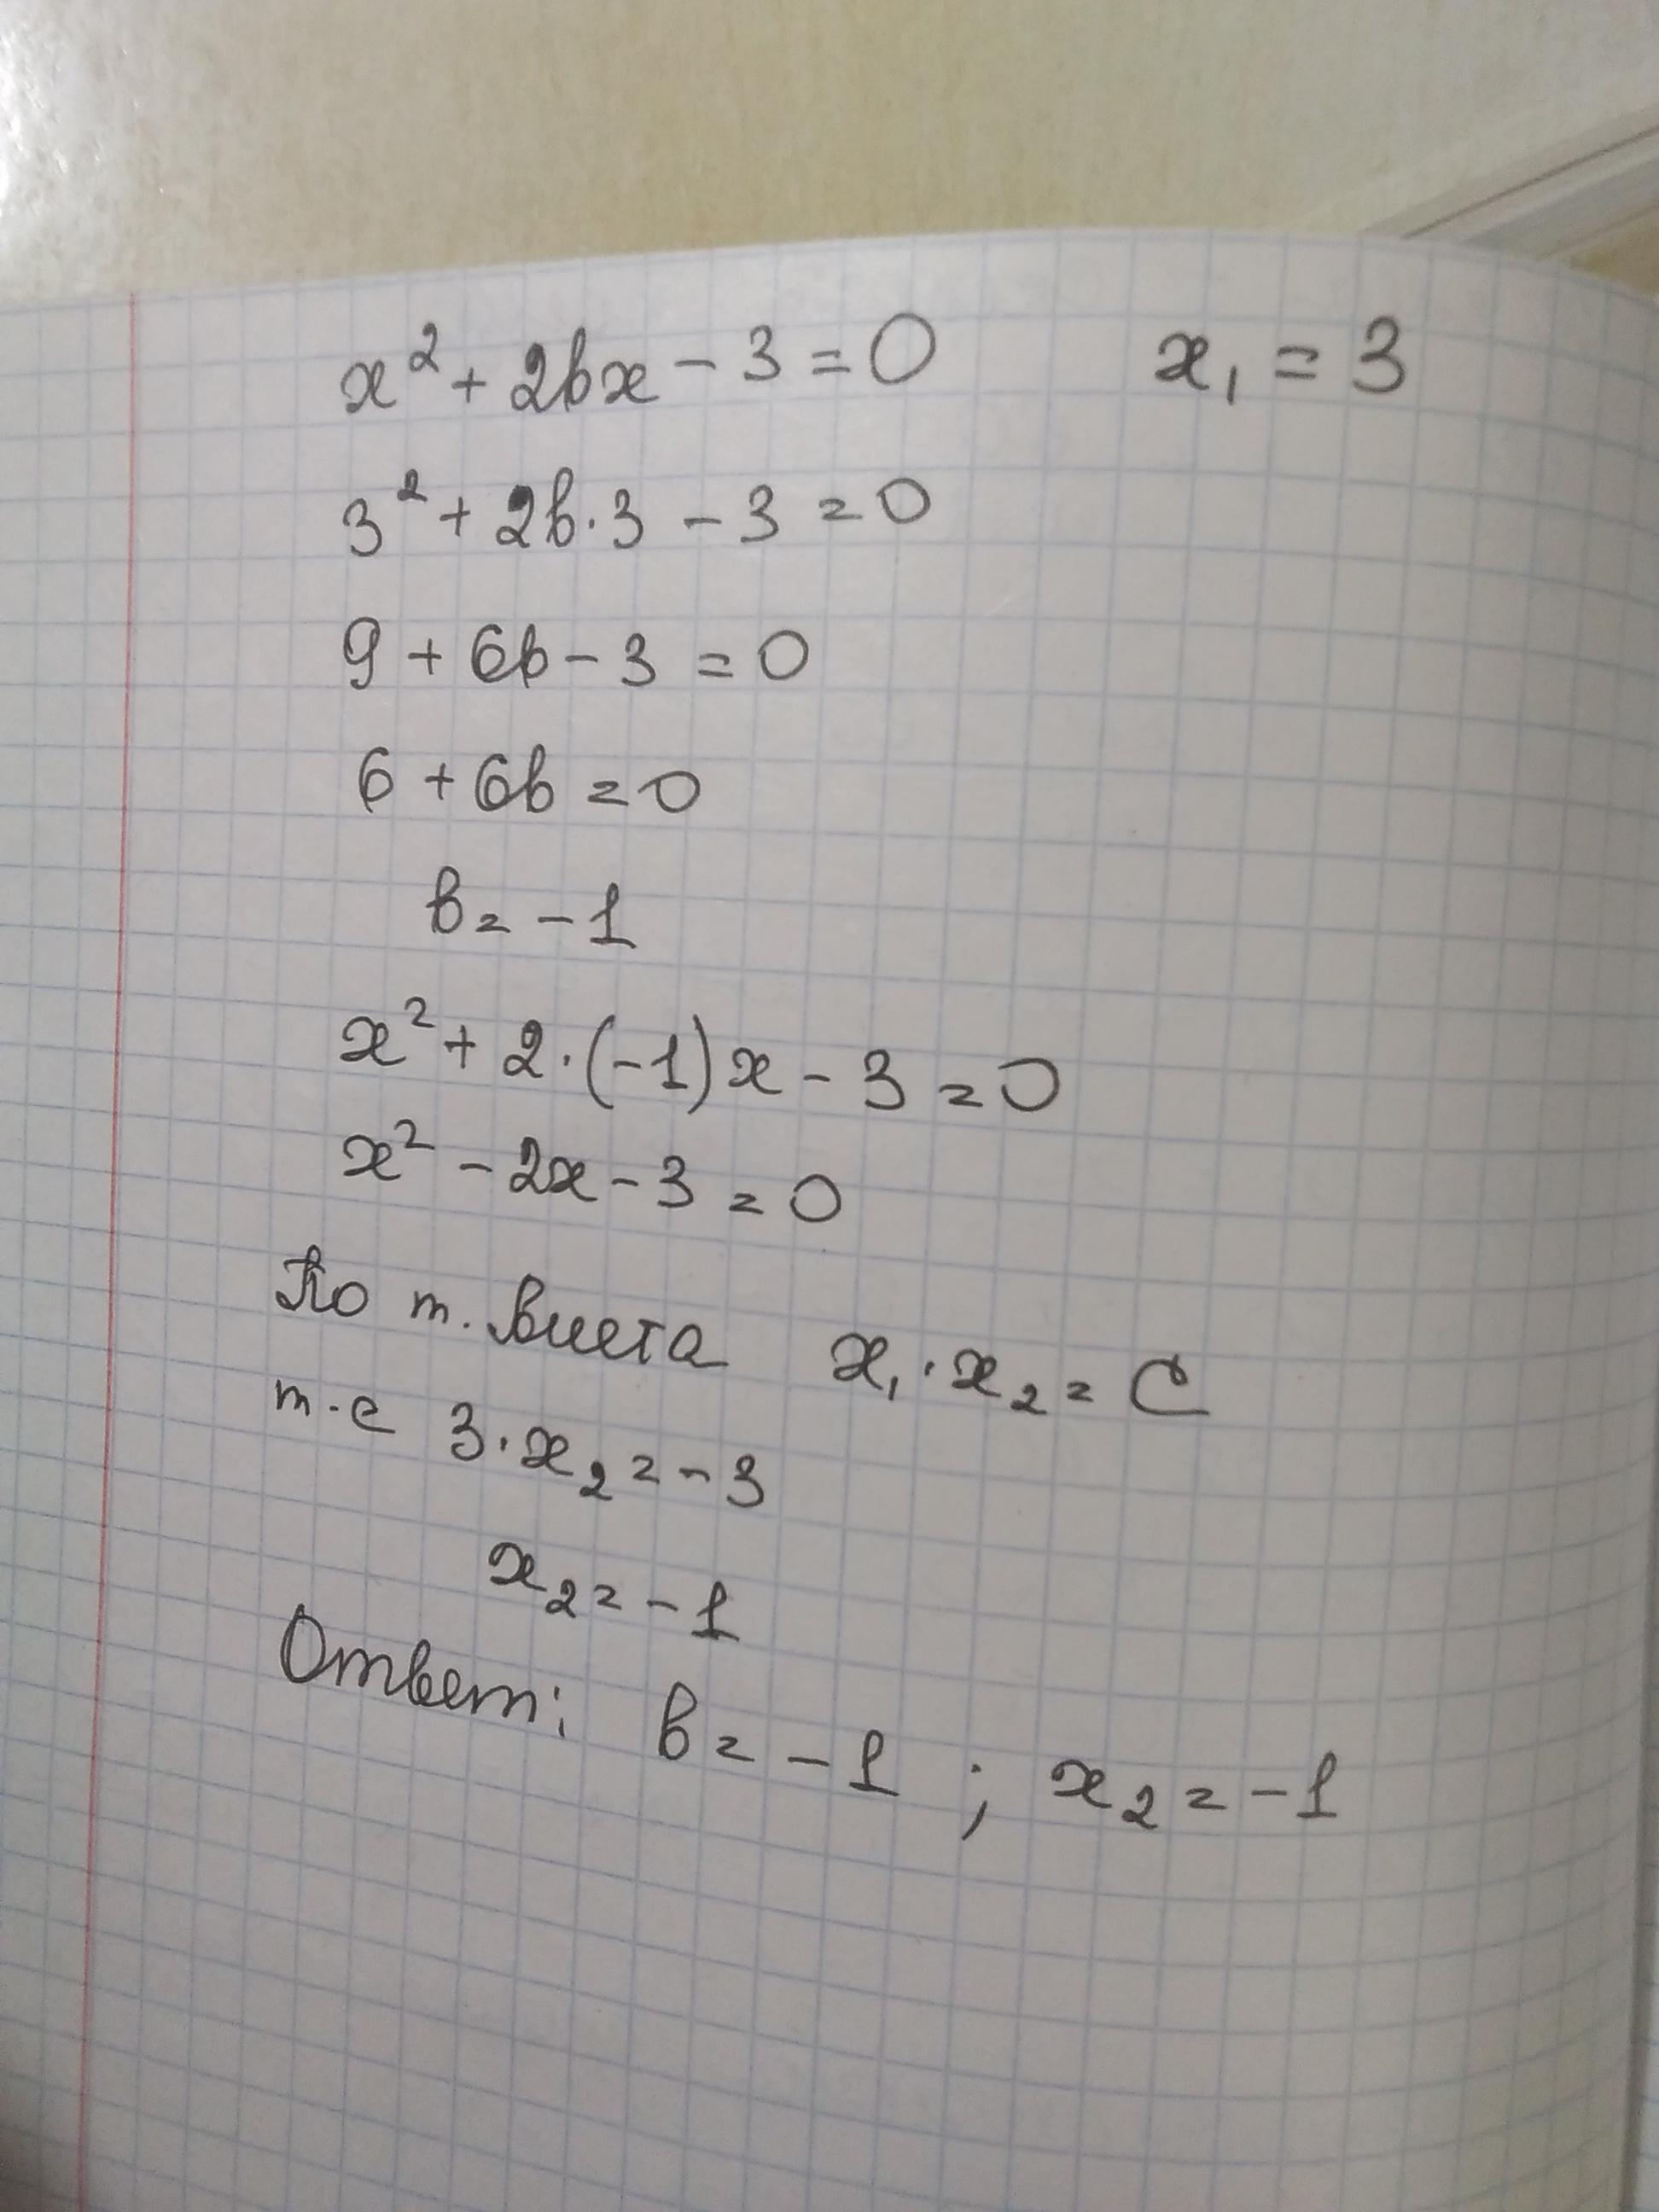 x² + 2bx - 3 = 0    x₁ = 3
3² + 2b·3 - 3 = 0
9 + 6b - 3 = 0
6 + 6b = 0
b = -1
x² + 2·(-1)x - 3 = 0
x² - 2x - 3 = 0
По т. Виета x₁·x₂ = C
т.е 3·x₂ = -3
x₂ = -1
Ответ: b = -1 ; x₂ = -1